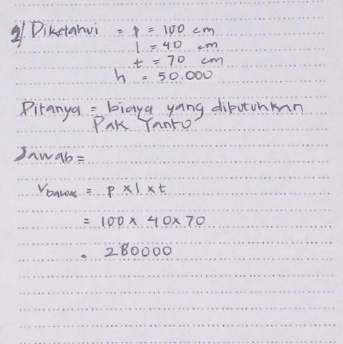 2/ Diketahui = p = 100 cm
l = 40 cm
t = 70 cm
h = 50.000
Ditanya = biaya yang dibutuhkan
Pak Yanto
Jawab =
V balok = p x l x t
= 100 x 40 x 70
= 280000